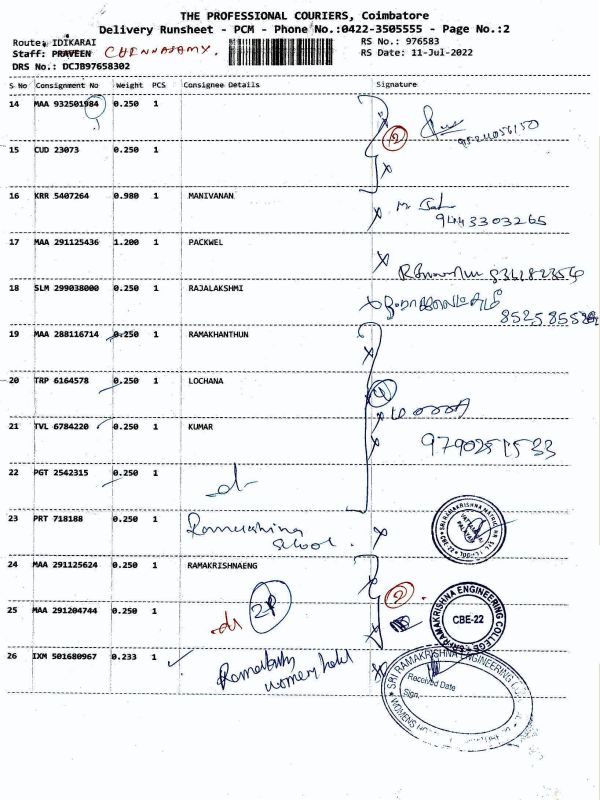 THE PROFESSIONAL COURIERS, Coimbatore
Delivery Runsheet - PCM - Phone No.:0422-3505555 - Page No.:2
Route: IDIKARAI
RS No.: 976583
Staff: PRAVEEN CHENNASAMY.
RS Date: 11-Jul-2022
DRS No.: DCJB97658302
S No Consignment No Weight PCS Consignee Details Signature
14 MAA 932501984 0.250 1
2
15 CUD 23073 0.250 1
16 KRR 5407264 0.980 1 MANIVANAN
9443303265
17 MAA 291125436 1.200 1 PACKWEL
18 SLM 299038000 0.250 1 RAJALAKSHMI
19 MAA 288116714 0.250 1 RAMAKHANTHUN
20 TRP 6164578 0.250 1 LOCHANA
4
21 TVL 6784220 0.250 1 KUMAR
9790251533
22 PGT 2542315 0.250 1
-d-
23 PRT 718188 0.250 1
School.
24 MAA 291125624 0.250 1 RAMAKRISHNAENG
2
25 MAA 291204744 0.250 1
2P
SRI RAMAKRISHNA ENGINEERING COLLEGE
CBE-22
26 IXM 501680967 0.233 1
womens hostel
SRI RAMAKRISHNA ENGINEERING
Received Date
Sign